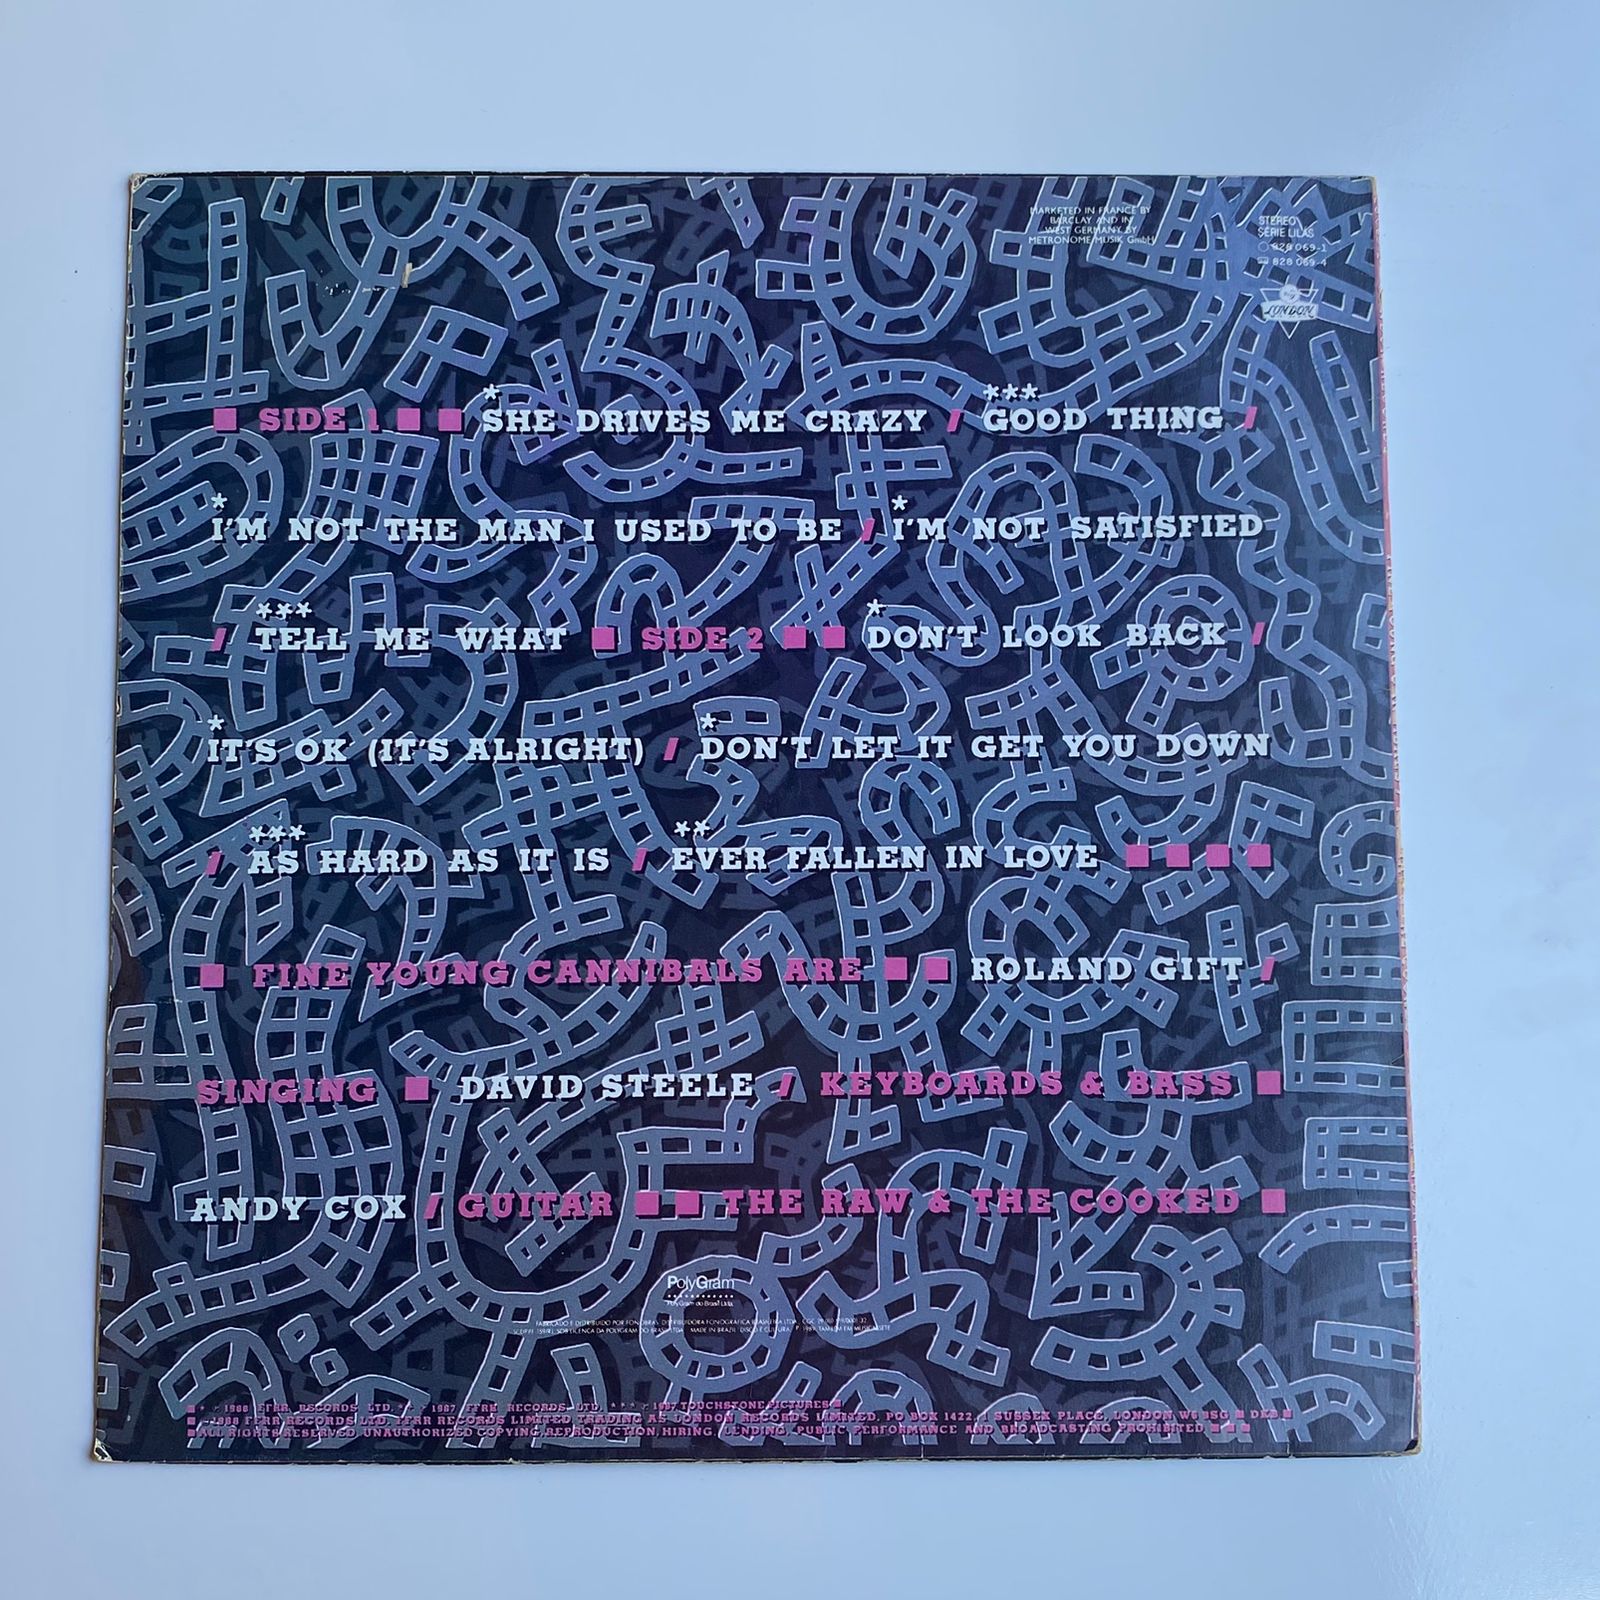 MARKETED IN FRANCE BY
BARCLAY AND IN
WEST GERMANY BY
METRONOME MUSIK GmbH
STEREO
SÉRIE LILÁS
828 069-1
828 069-4
LONDON
■ SIDE 1 ■ ■ *SHE DRIVES ME CRAZY / ***GOOD THING /
*I'M NOT THE MAN I USED TO BE / *I'M NOT SATISFIED
/ ***TELL ME WHAT ■ SIDE 2 ■ ■ *DON'T LOOK BACK /
*IT'S OK (IT'S ALRIGHT) / *DON'T LET IT GET YOU DOWN
/ ***AS HARD AS IT IS / **EVER FALLEN IN LOVE ■ ■ ■ ■
■ FINE YOUNG CANNIBALS ARE ■ ■ ROLAND GIFT /
SINGING ■ DAVID STEELE / KEYBOARDS & BASS ■
ANDY COX / GUITAR ■ ■ THE RAW & THE COOKED ■
PolyGram
PolyGram do Brasil Ltda.
FABRICADO E DISTRIBUIDO POR FONOBRAS DISTRIBUIDORA FONOGRAFICA BRASILEIRA LTDA. CGC
SOB LICENÇA DA POLYGRAM DO BRASIL LTDA. MADE IN BRAZIL. DISCO É CULTURA. TAMBÉM EM MUSICASSETE
■ * ℗ 1988 FFRR RECORDS LTD. * * ℗ 1987 FFRR RECORDS LTD. * * * ℗ 1987 TOUCHSTONE PICTURES ■
■ 1988 FFRR RECORDS LTD. FFRR RECORDS LIMITED TRADING AS LONDON RECORDS LIMITED, PO BOX 1422, 1 SUSSEX PLACE, LONDON W6 9SG ■ DKB ■
■ ALL RIGHTS RESERVED. UNAUTHORIZED COPYING, REPRODUCTION, HIRING, LENDING, PUBLIC PERFORMANCE AND BROADCASTING PROHIBITED ■ ■ ■